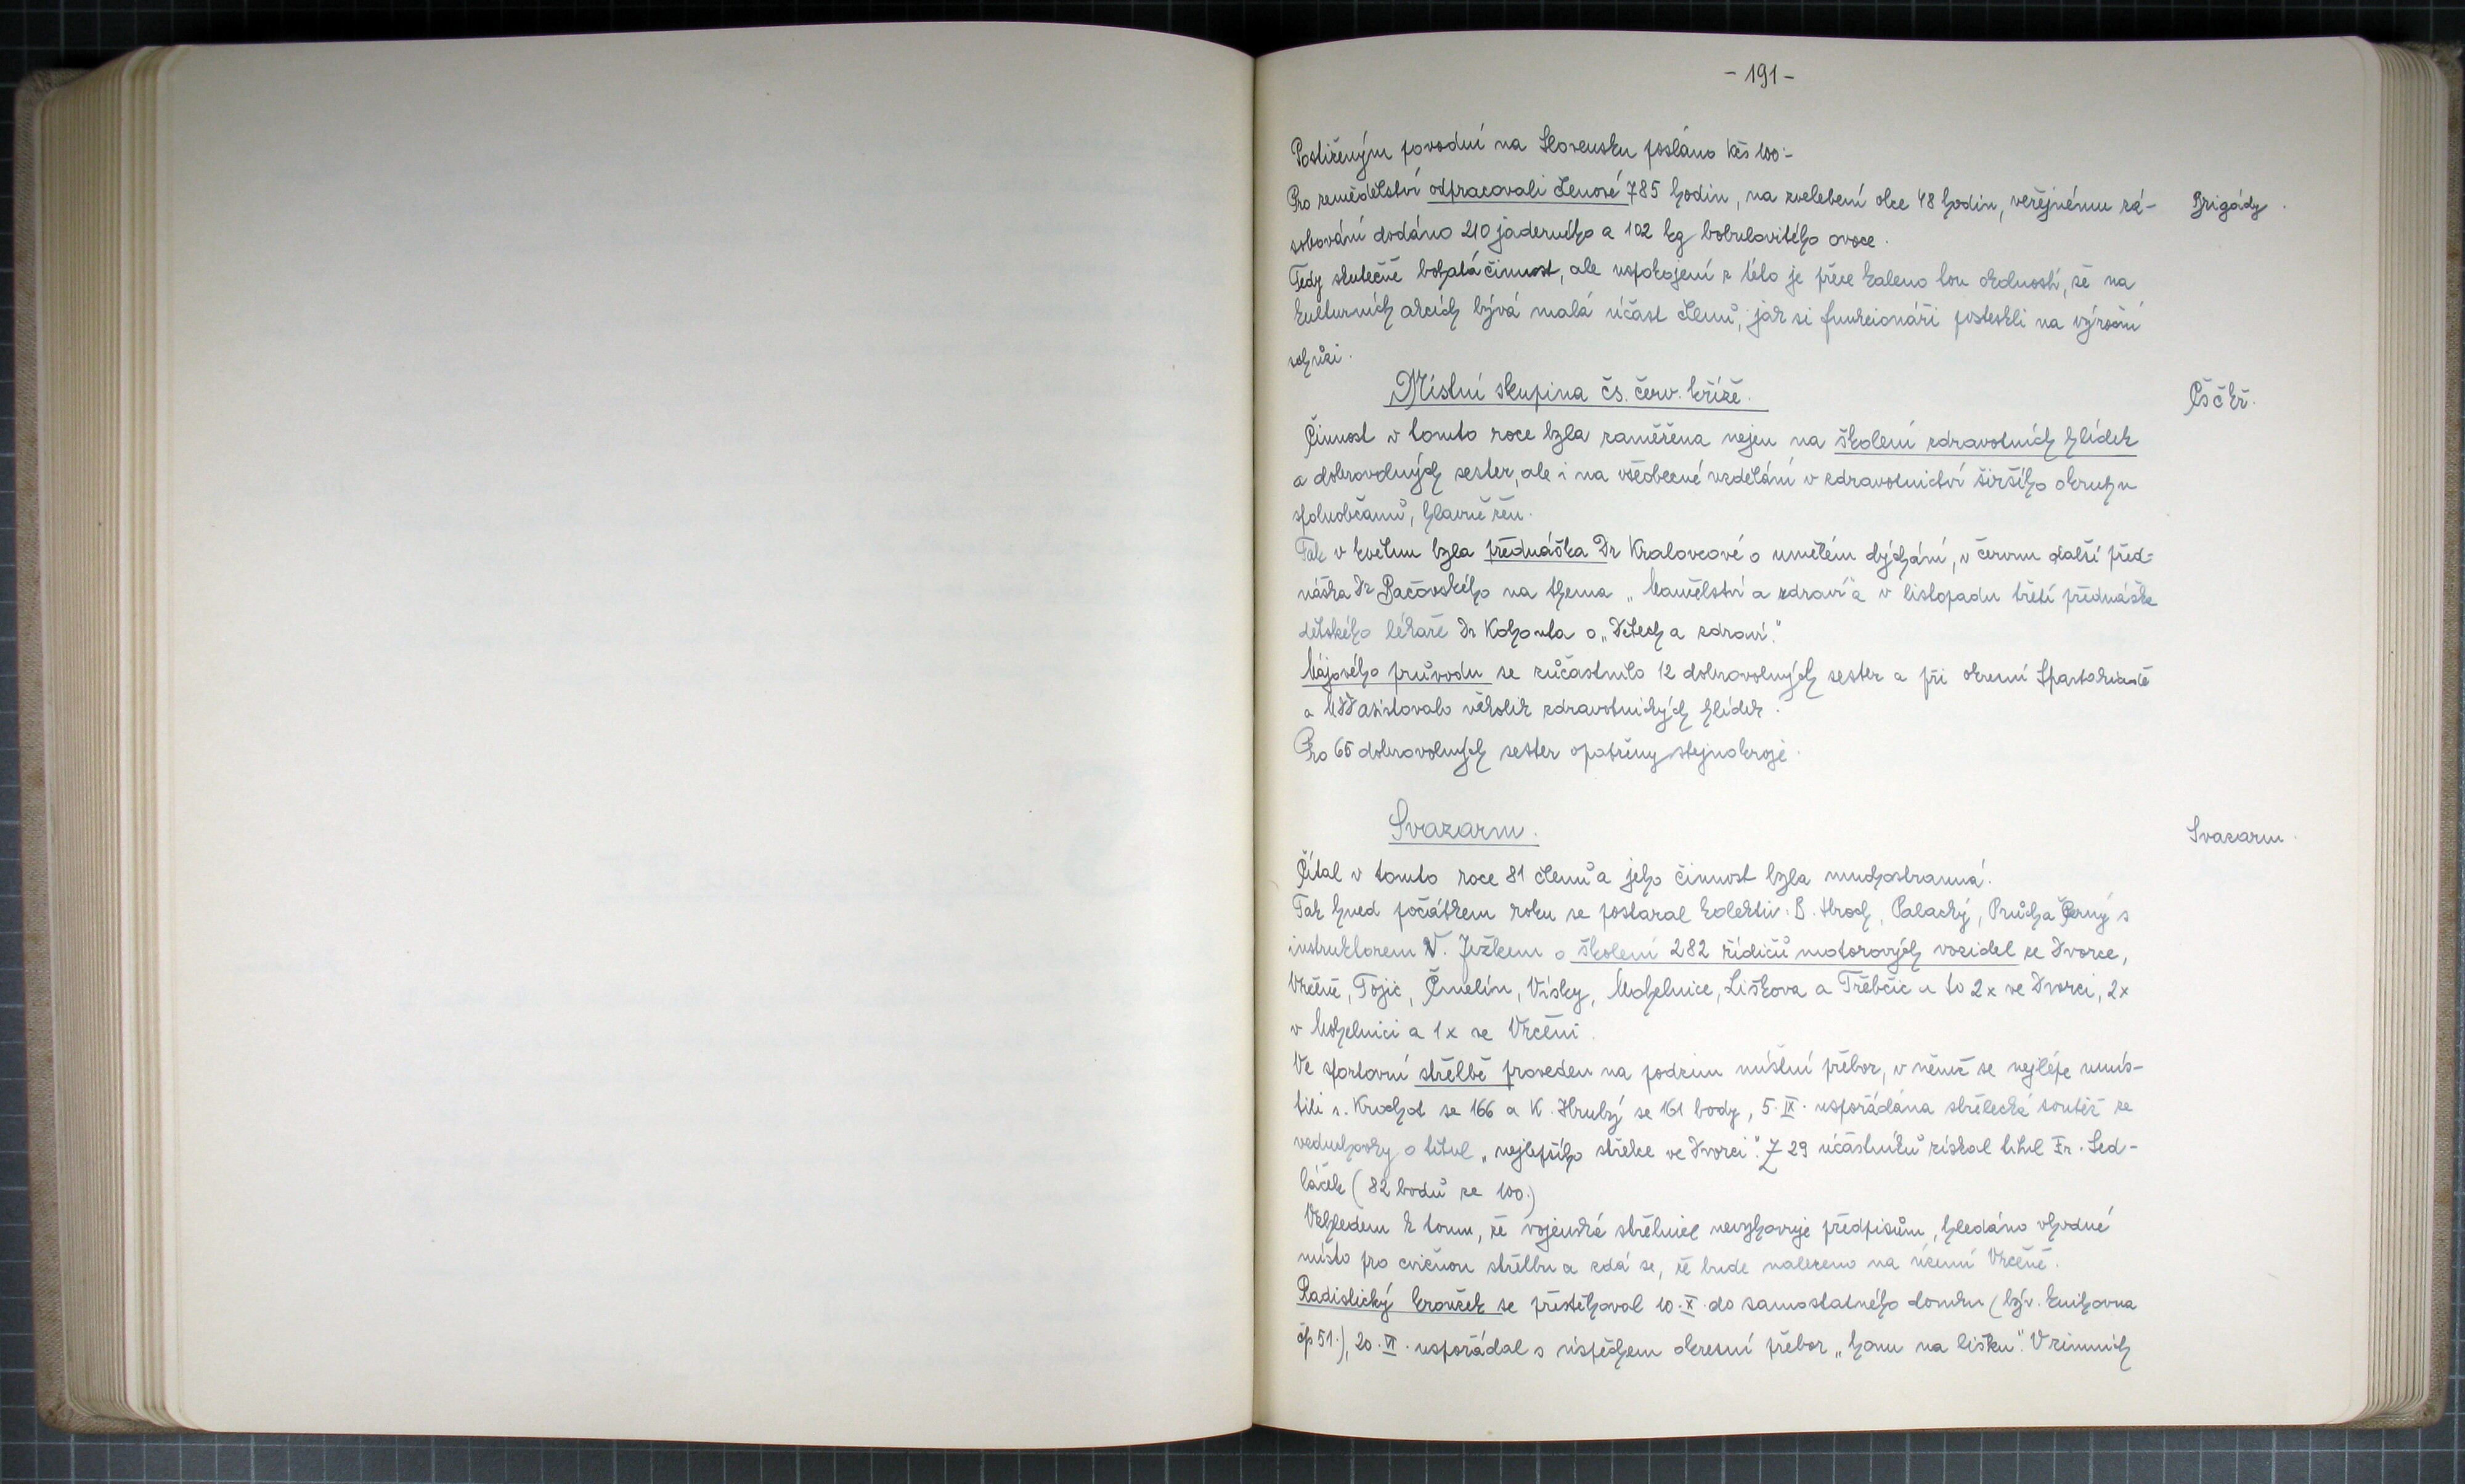 - 191 -
Postiženým povodní na Slovensku posláno Kčs 100:-
Pro zemědělství odpracovali členové 785 hodin, na zvelebení obce 48 hodin, veřejnému zá-
Brigády.
sobování dodáno 210 jaderného a 102 kg bobulovitého ovoce.
Tedy skutečně bohatá činnost, ale uspokojení z této je přece kaleno tou okolností, že na
kulturních akcích bývá malá účast členů, jak si funkcionáři postěskli na výroční
schůzi.
Místní skupina čs. červ. kříže.
ČSČKř.
Činnost v tomto roce byla zaměřena nejen na školení zdravotních hlídek
a dobrovolných sester, ale i na všeobecné vzdělání v zdravotnictví širšího okruhu
spoluobčanů, hlavně žen.
Tak v květnu byla přednáška Dr Kralovcové o umělém dýchání, v červnu další před-
náška Dr Pačovského na thema „Manželství a zdraví" a v listopadu třetí přednáška
dětského lékaře Dr Kohouta o „Dětech a zdraví."
Májového průvodu se zúčastnilo 12 dobrovolných sester a při okresní Spartakiadě
a asistovalo několik zdravotnických hlídek.
Pro 65 dobrovolných sester opatřeny stejnokroje.
Svazarm.
Svazarm.
Čítal v tomto roce 81 členů a jeho činnost byla mnohostranná.
Tak hned počátkem roku se postaral kolektiv: B. Hroch, Palacký, Průcha Černý s
instruktorem V. Ježkem o školení 282 řidičů motorových vozidel ze Dvorce,
Vrčeně, Tojic, Čmelín, Vísky, Mohelnice, Liškova a Třebčic a to 2x ve Dvorci, 2x
v Mohelnici a 1x ve Vrčeni.
Ve sportovní střelbě proveden na podzim místní přebor, v němž se nejlépe umís-
tili s. Krochot se 166 a K. Hrubý se 161 body, 5. IX. uspořádána střelecká soutěž ze
vzduchovky o titul „nejlepšího střelce ve Dvorci." Z 29 účastníků získal titul Fr. Sed-
láček (82 bodů ze 100.)
Vzhledem k tomu, že vojenská střelnice nevyhovuje předpisům, hledáno vhodné
místo pro cvičnou střelbu a zdá se, že bude nalezeno na území Vrčeně.
Radistický kroužek se přestěhoval 10. X. do samostatného domku (býv. knihovna
čp 51.), 20. VI. uspořádal s úspěchem okresní přebor „honu na lišku." V zimních